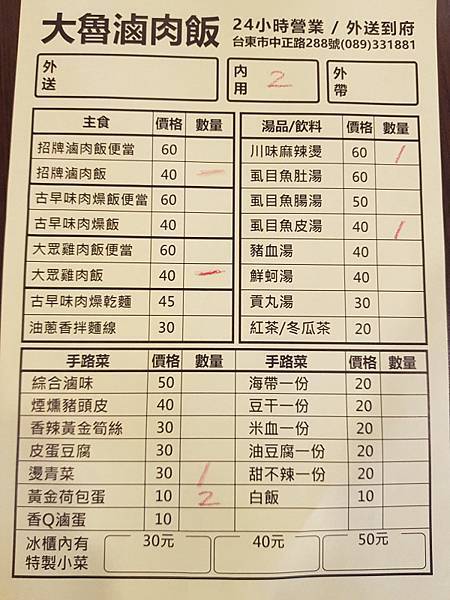 大魯滷肉飯 24小時營業 / 外送到府
台東市中正路288號(089)331881
外送 內用 2 外帶
主食 價格 數量
招牌滷肉飯便當 60
招牌滷肉飯 40 一
古早味肉燥飯便當 60
古早味肉燥飯 40
大眾雞肉飯便當 60
大眾雞肉飯 40 一
古早味肉燥乾麵 45
油蔥香拌麵線 30
湯品/飲料 價格 數量
川味麻辣燙 60 1
虱目魚肚湯 60
虱目魚腸湯 50
虱目魚皮湯 40 1
豬血湯 40
鮮蚵湯 40
貢丸湯 30
紅茶/冬瓜茶 20
手路菜 價格 數量
綜合滷味 50
煙燻豬頭皮 40
香辣黃金筍絲 30
皮蛋豆腐 30
燙青菜 30 1
黃金荷包蛋 10 2
香Q滷蛋 10
手路菜 價格 數量
海帶一份 20
豆干一份 20
米血一份 20
油豆腐一份 20
甜不辣一份 20
白飯 10
冰櫃內有
特製小菜
30元 40元 50元